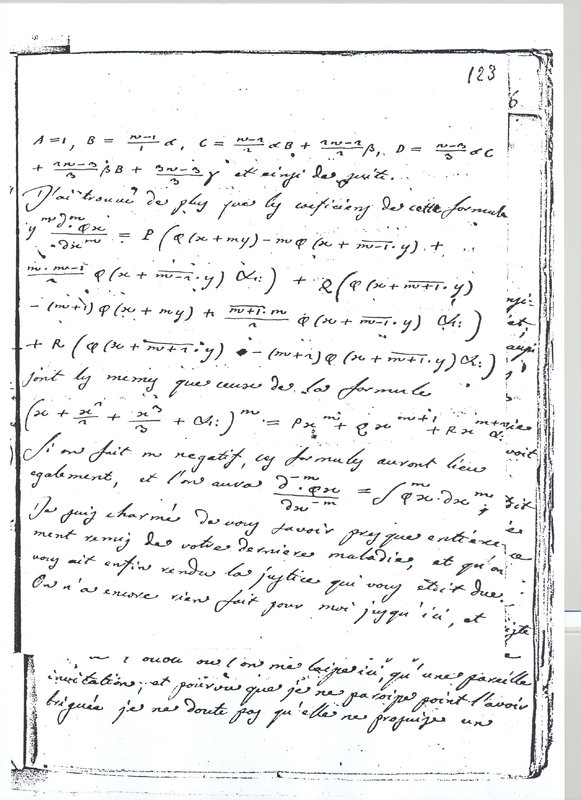 123
6
A=1, B = \frac{n-1}{1} α, C = \frac{n-2}{2} αB + \frac{2n-2}{2} β, D = \frac{n-3}{3} αC
+ \frac{2n-3}{3} βB + \frac{3n-3}{3} γ et ainsi de suite.
J'ai trouvé de plus que les coeficiens de cette formule
y^m \frac{d^m.φx}{dx^m} = P (φ(x+my) - mφ(x + \overline{m-1}.y) +
\frac{m.m-1}{2} φ(x + \overline{m-2}.y) &c:) + Q (φ(x + \overline{m+1}.y)
- (m+1)φ(x+my) + \frac{\overline{m+1}.m}{2} φ(x + \overline{m-1}.y) &c:)
+ R (φ(x + \overline{m+2}.y) - (m+2)φ(x + \overline{m+1}.y) &c:)
sont les memes que ceux de la formule
(x + \frac{x^2}{2} + \frac{x^3}{3} + &c:)^m = Px^m + Qx^{m+1} + Rx^{m+2} &c.
Si on fait m negatif, ces formules auront lieu
egalement, et l'on aura \frac{d^{-m}.φx}{dx^{-m}} = ∫^m φx.dx^m;
Je suis charmé de vous savoir presque entiere
ment remis de votre derniere maladie, et qu'on
vous ait enfin rendu la justice qui vous étoit due.
On n'a encore rien fait pour moi jusqu'ici, et
ou l'on me laisse ici, qu'une pareille
invitation; et pourvu que je ne paroisse point l'avoir
briguée je ne doute pas qu'elle ne produise un